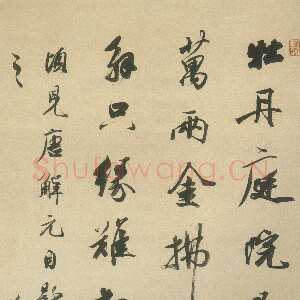 牡丹庭院
萬兩金拂
解只緣難
頃見唐解元自題
之
Shufawang.CN